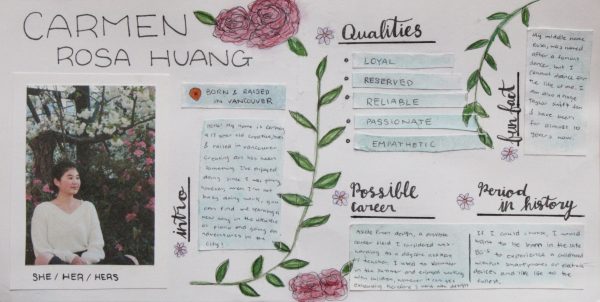 CARMEN
ROSA HUANG
SHE / HER / HERS
BORN & RAISED
IN VANCOUVER
intro
Hello! My name is Carmen
& raised in Vancouver
Creating art has been
something I've enjoyed
doing since I was young
however when I'm not
busy doing work, you
can find me learning a
new song on the ukulele
or piano and going on
adventures in the
city!
Qualities
LOYAL
RESERVED
RELIABLE
PASSIONATE
EMPATHETIC
fun fact
My middle name
Rosa, was named
after a famous
dancer but I
cannot dance for
the life of me. I
am also a huge
Taylor Swift fan
& have been
for almost 10
years now.
Possible
career
Aside from design, a possible
career field I considered was
working as a daycare
teacher. I used to
in the summer and enjoyed working
with children, however
Period
in history
If I could choose, I would
want to be born in the late
80's to experience a childhood
without smartphones or
devices and live life to the
fullest.